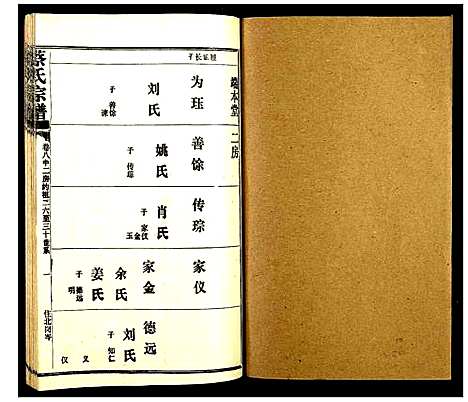 蔡氏宗谱
卷八中二房约祖二六至三十世系
一
住北岗岑
二房
为珏
刘氏
子 善馀
善馀
姚氏
子 传琮
传琮
肖氏
子 家仪
家金
玉
家仪
家金
余氏
姜氏
子 德远
明
德远
刘氏
子 知仁
义
仪